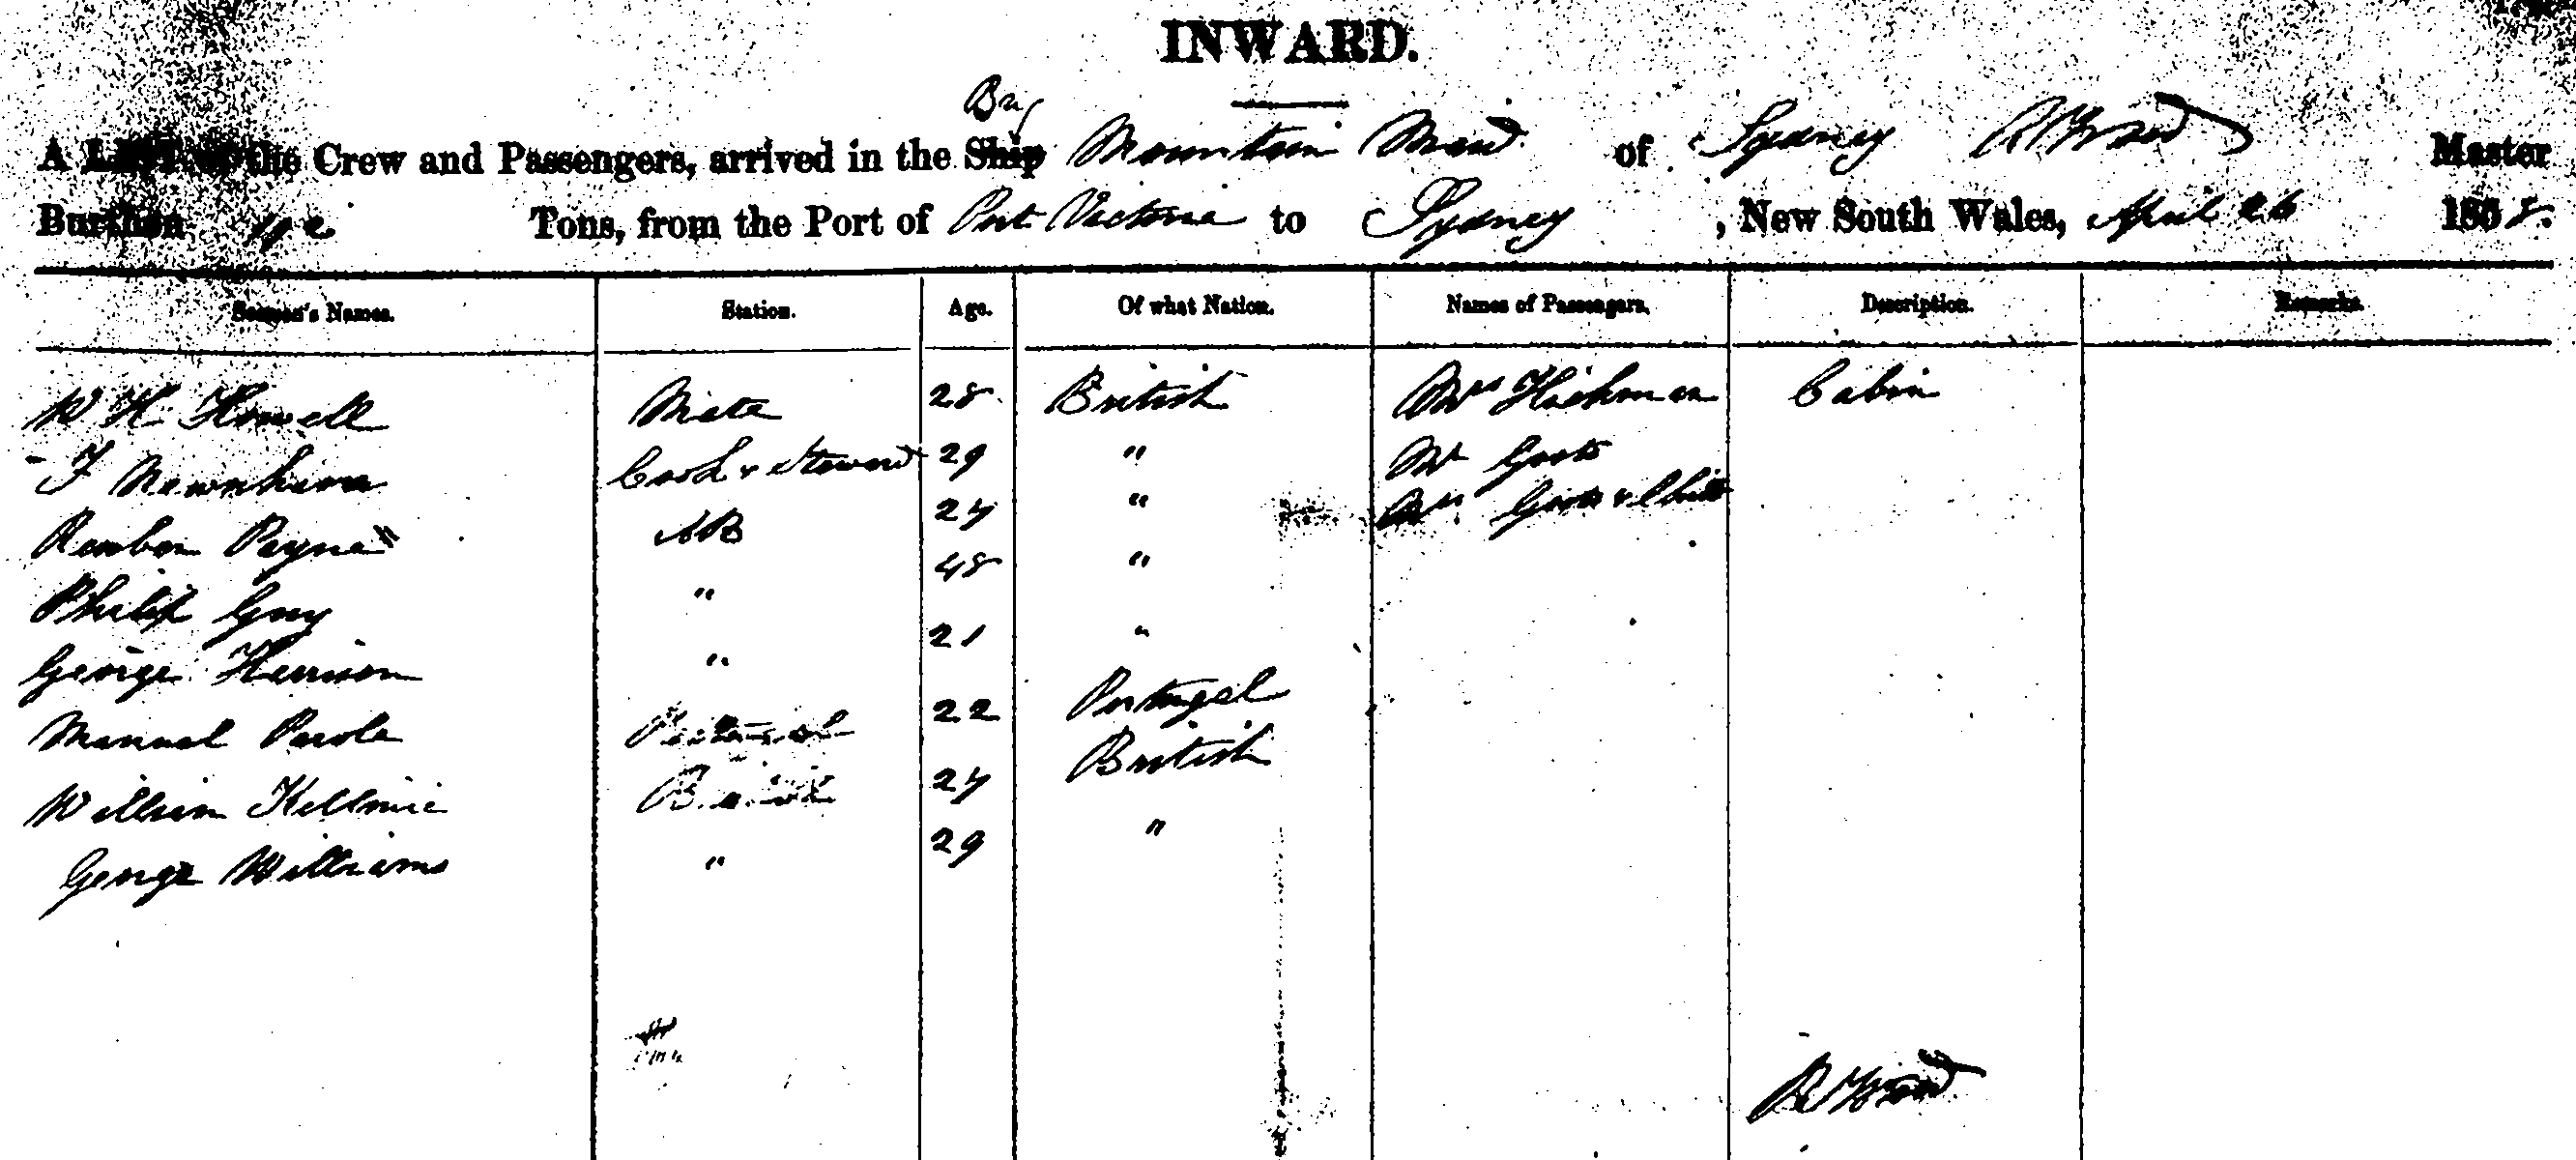 INWARD.
Brig
A LIST of the Crew and Passengers, arrived in the Ship Mountain Maid of Sydney R Wood Master
Burthen Tons, from the Port of Port Victoria to Sydney, New South Wales, April 26 1858.
Seamen's Names. Station. Age. Of what Nation. Names of Passengers. Description. Remarks.
W H Howell Mate 28 British Mrs Hickman Cabin
F Newnham Cook & Steward 29 " Mr
Reuben Payne AB 24 " Mrs
Philip Guy " 48 "
George Harrison " 21 "
Manual 22 Portugal
William 24 British
George Williams " 29 "
R Wood